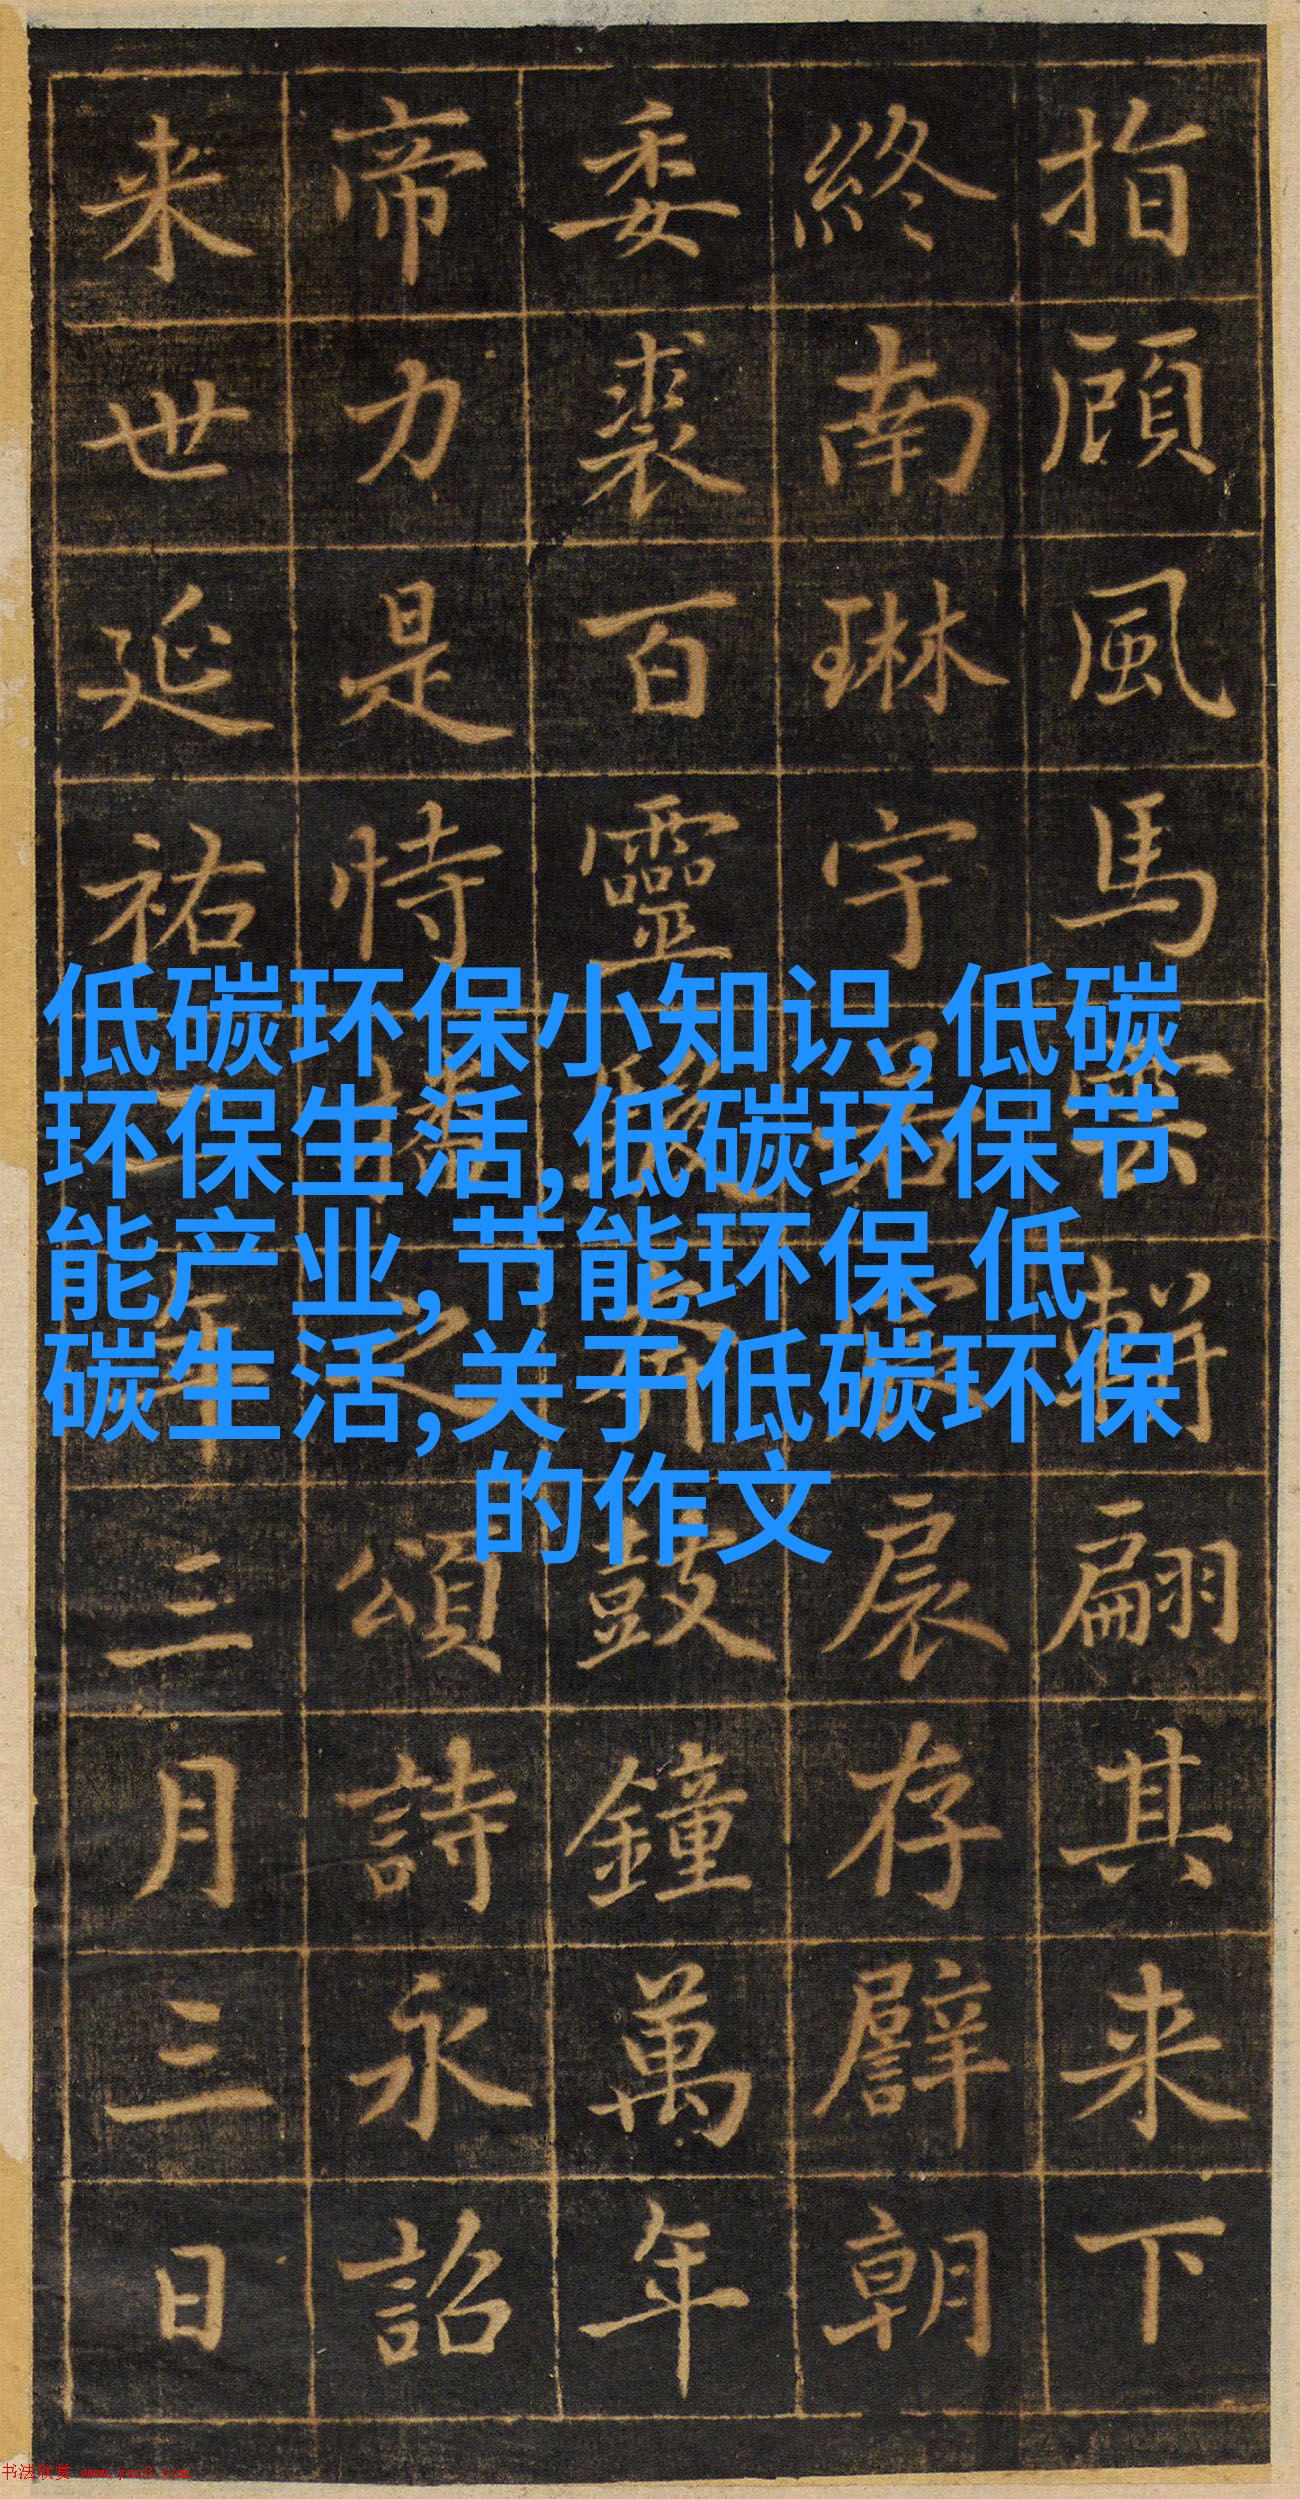 指顧風馬雲軿翩其来下
終南琳宇若扆存朝
委裘百靈鼓鐘萬年
帝力是恃播之頌詩永詔
来世延祐年三月三日
低碳环保小知识,低碳
环保生活,低碳环保节
能产业,节能环保 低
碳生活,关于低碳环保
的作文
书法欣赏 www.yac8.com